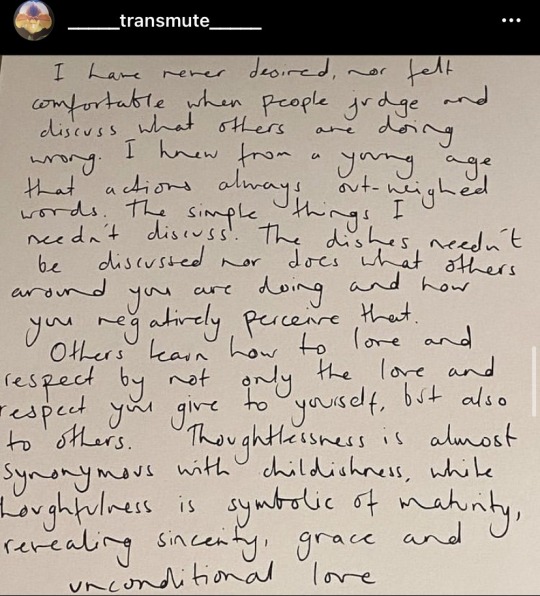 _____transmute_____
I have never desired, nor felt
comfortable when people judge and
discuss what others are doing
wrong. I knew from a young age
that actions always out-weighed
words. The simple things I
needn't discuss. The dishes needn't
be discussed nor does what others
around you are doing and how
you negatively perceive that.
Others learn how to love and
respect by not only the love and
respect you give to yourself, but also
to others. Thoughtlessness is almost
synonymous with childishness, while
houghfulness is symbolic of maturity,
revealing sincerity, grace and
unconditional love